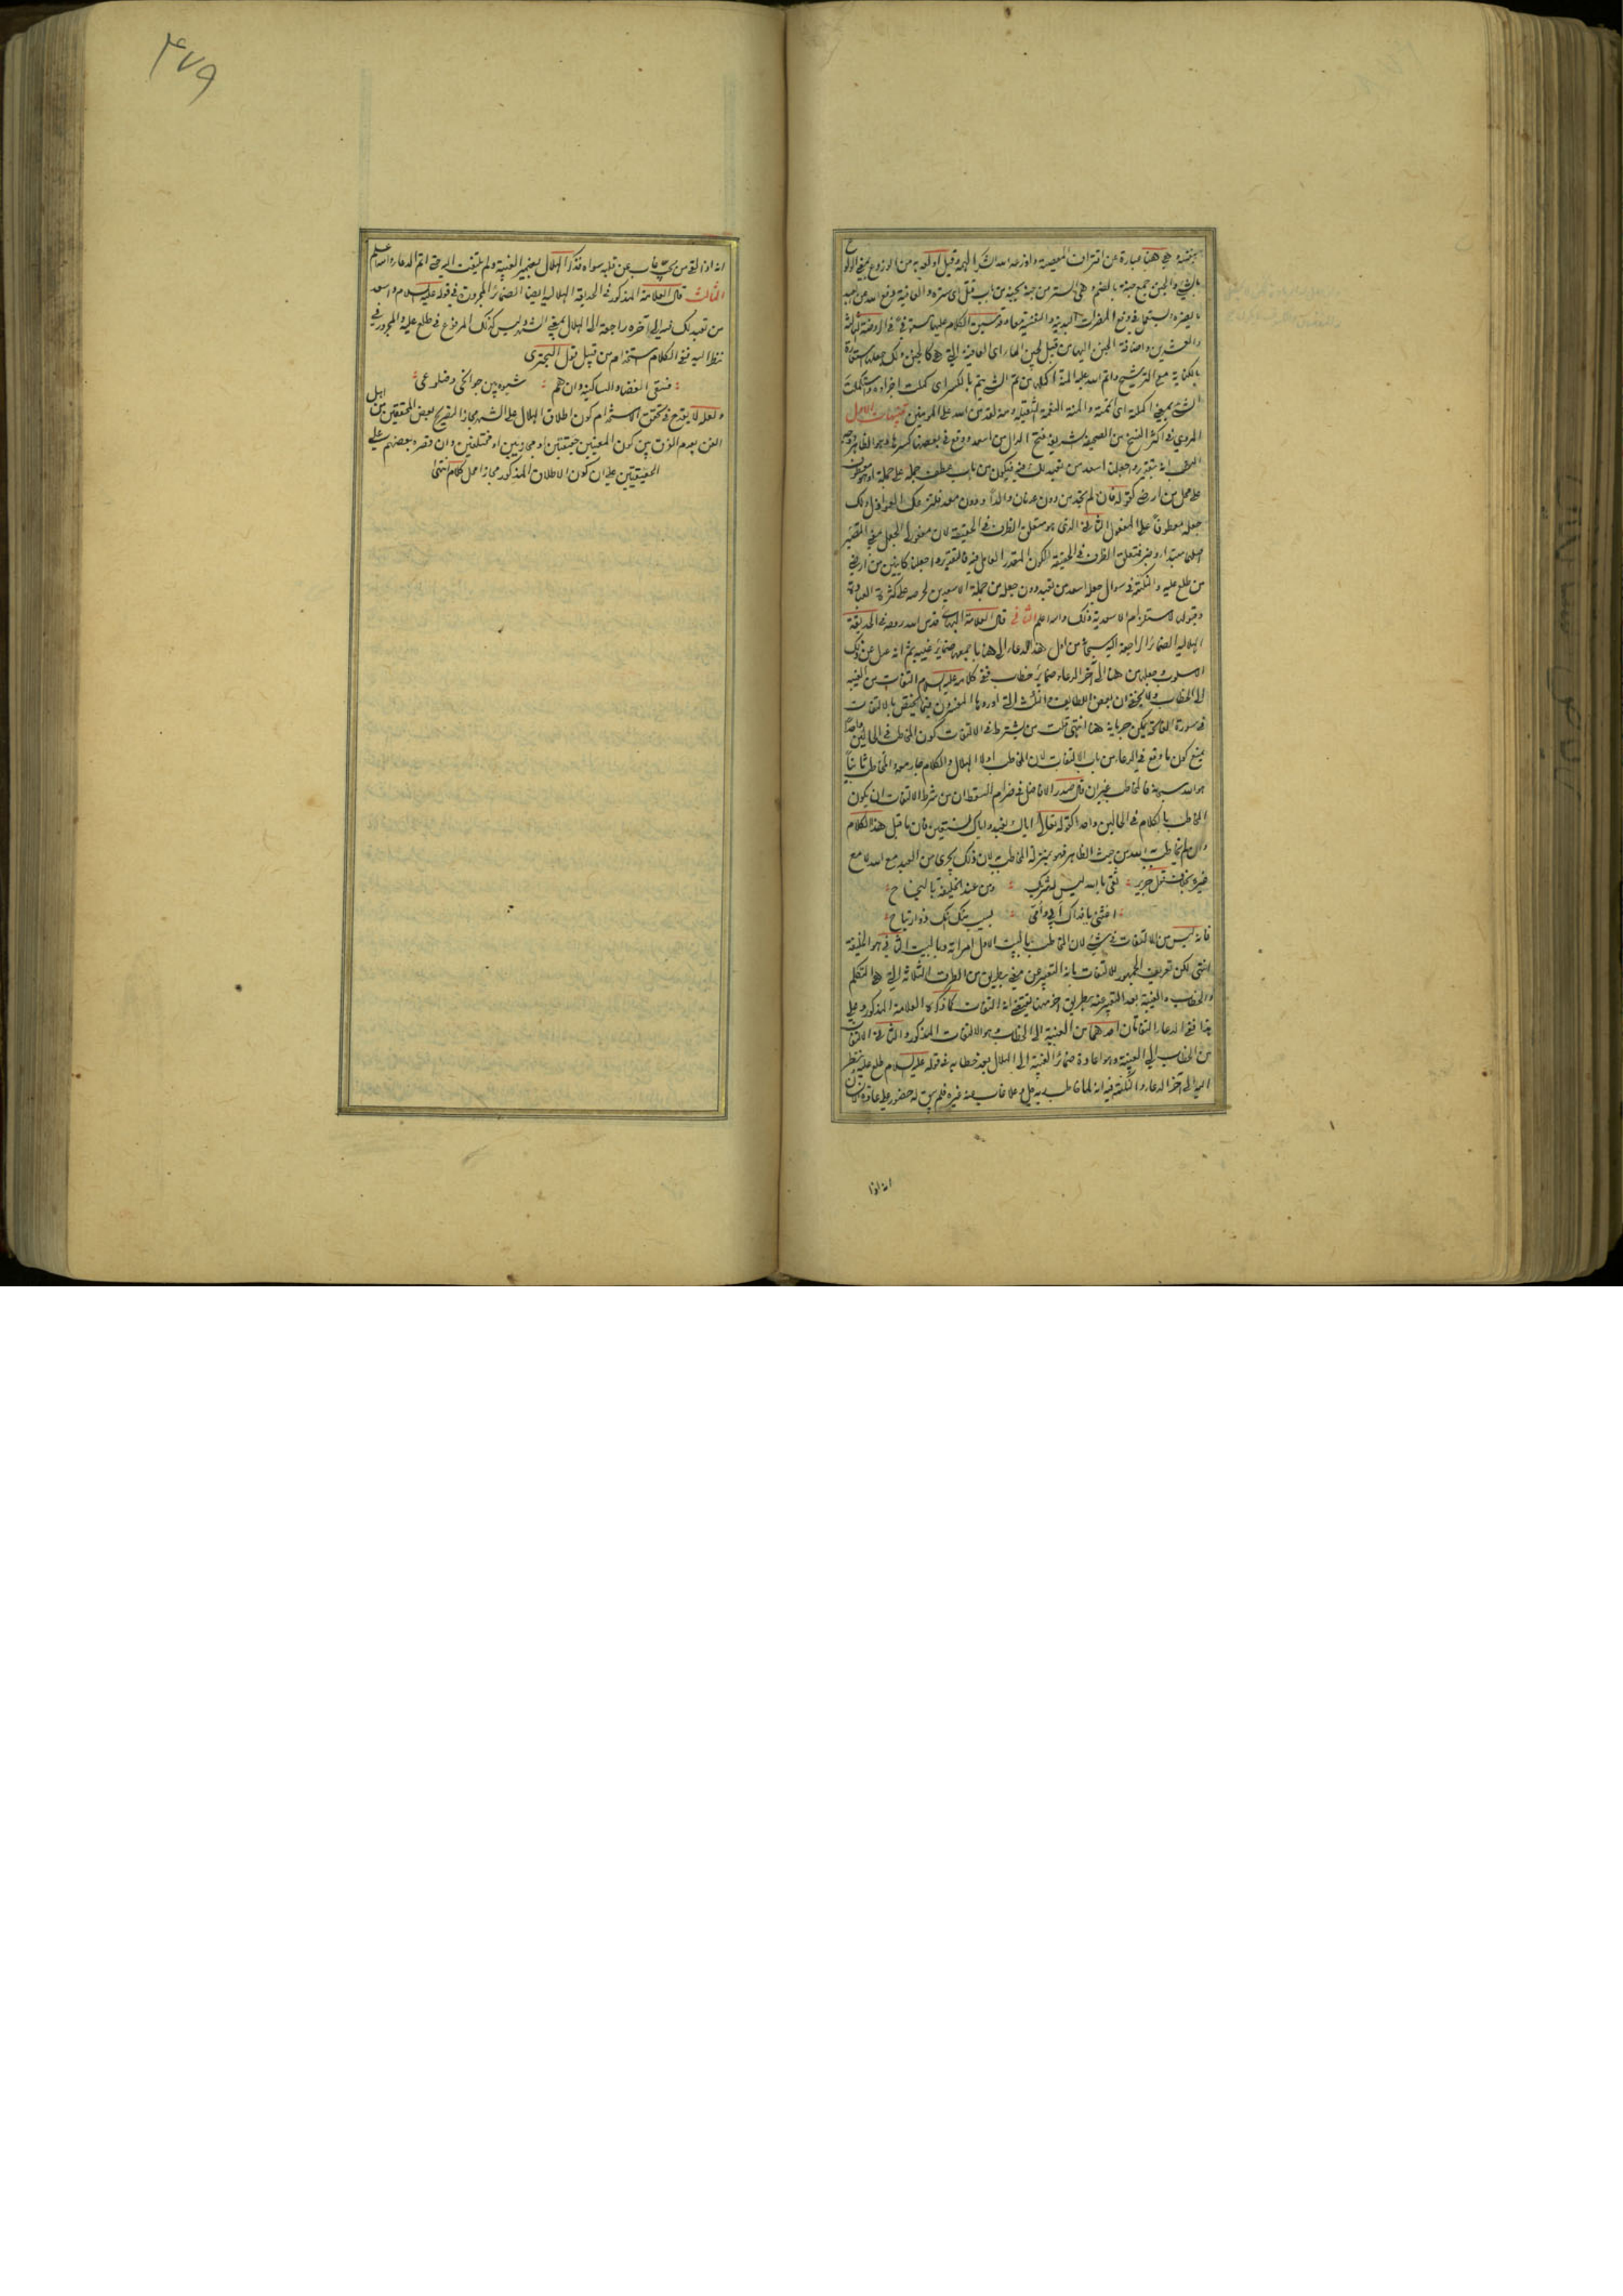 بالشيء والجنن جمع جنة بالضم وهي الستر من جنه يجنه من باب قتل اي ستره والعافية دفع الله عن العبد
والعشرين واضافة الجنن اليها من قبيل لجين الماء اي العافية التي هي كالجنن ولك جعلها استعارة
بالكناية مع الترشيح واتم الله عليه المنة اكملها من تم الشيء يتم بالكسر اي كملت اجزاؤه واستكملت
الشيء بمعنى اكملته اي اتممته والمنة النعمة الثقيلة ومنه لقد من الله على المؤمنين تنبيهات الاول
المروي في اكثر النسخ من الصحيفة الشريفة فتح الدال من اسعد ووقع في بعضها كسرها
على محل من ارضى كقوله فان لم تجد من دون عدنان والدا ودون معد فلتزعك العواذل ولك
جعله معطوفا على المفعول الثاني الذي هو متعلق الظرف في الحقيقة لان مفعولي الجعل بمعنى التصيير
اصلهما مبتدأ وخبر فمتعلق الظرف في الحقيقة الكون المقدر العامل فيه فالتقدير واجعلنا كائنين من ارضى
من طلع عليه والنكتة في سؤال جعله اسعد من تعبد دون جعله من جملة الاسعدين لحرصه على كثرة العبادة
وقبولها لاستلزام الاسعدية ذلك والله اعلم الثاني قال العلامة البهائي قدس الله روحه في الحديقة
الهلالية الضمائر الراجعة اليه سبحانه من اول هذا الدعاء الى هنا باجمعها ضمائر غيبة ثم انه عدل عن ذلك
الاسلوب وجعلها من هنا الى آخر الدعاء ضمائر خطاب ففي كلامه عليه السلام التفات من الغيبة
الى الخطاب ولا يخفى ان بعض اللطائف والنكت التي اوردها المفسرون فيما يختص بالالتفات
في سورة الفاتحة يمكن جريانه هنا انتهى قلت من يشترط في الالتفات كون المخاطب في الحالين واحدا
يمنع كون ما وقع في الدعاء من باب الالتفات لان المخاطب اولا الهلال والكلام جار معه والمخاطب ثانيا
هو الله سبحانه فالمخاطب غيران قال صدر الافاضل في ضرام السقط ان من شرط الالتفات ان يكون
المخاطب بالكلام في الحالين واحدا كقوله تعالى اياك نعبد واياك نستعين فان ما قبل هذا الكلام
وان لم يخاطب به الله من حيث الظاهر فهو بمنزلة المخاطب به لان ذلك يجري من العبد مع الله لا مع
غيره بخلاف قول جرير ثقي بالله ليس له شريك ومن عند الخليفة بالنجاح
اغثني يا فداك ابي وامي بسيب منك انك ذو ارتياح
فانه ليس من الالتفات في شيء لان المخاطب بالبيت الاول امراته وبالبيت الثاني هو الخليفة
انتهى لكن تعريف الجمهور للالتفات بانه التعبير عن معنى بطريق من الطرق الثلاثة التي هي التكلم
والخطاب والغيبة بعد التعبير عنه بطريق آخر منها يقتضي انه التفات كما ذكره العلامة المذكور وعلى
هذا ففي الدعاء التفاتان احدهما من الغيبة الى الخطاب وهو الالتفات المذكور والثاني الالتفات
من الخطاب الى الغيبة وهو اعادة ضمائر الغيبة الى الهلال بعد خطابه في قوله عليه السلام طلع عليه ونظر
اليه الى آخر الدعاء والنكتة فيه انه لما خاطب ربه جل وعلا غاب عنه غيره فلم يبق له حضور على عادة
انه اذا
٤٧٩
غاب عن قلبه سواه فذكر الهلال بضمير الغيبة ولم يلتفت اليه حتى اتم الدعاء والله اعلم
الثالث قال العلامة المذكور في الحديقة الهلالية ايضا الضمائر المجرورة في قوله عليه السلام واسعد
من تعبد لك فيه الى آخره راجعة الى الهلال بمعنى الشهر وليس كذلك المرفوع في طلع عليه والمجرور في
نظر اليه ففي الكلام استخدام من قبيل قول البحتري
فسقى الغضا والساكنيه وان هم شبوه بين جوانحي وضلوعي
ولعله لا يقدح في تحقق الاستخدام كون اطلاق الهلال على الشهر مجازا لتصريح بعض المحققين من اهل
الفن بعدم الفرق بين كون المعنيين حقيقيين او مجازيين او مختلفين وان قصره بعضهم على
الحقيقيين على ان كون الاطلاق المذكور مجازا محل كلام انتهى